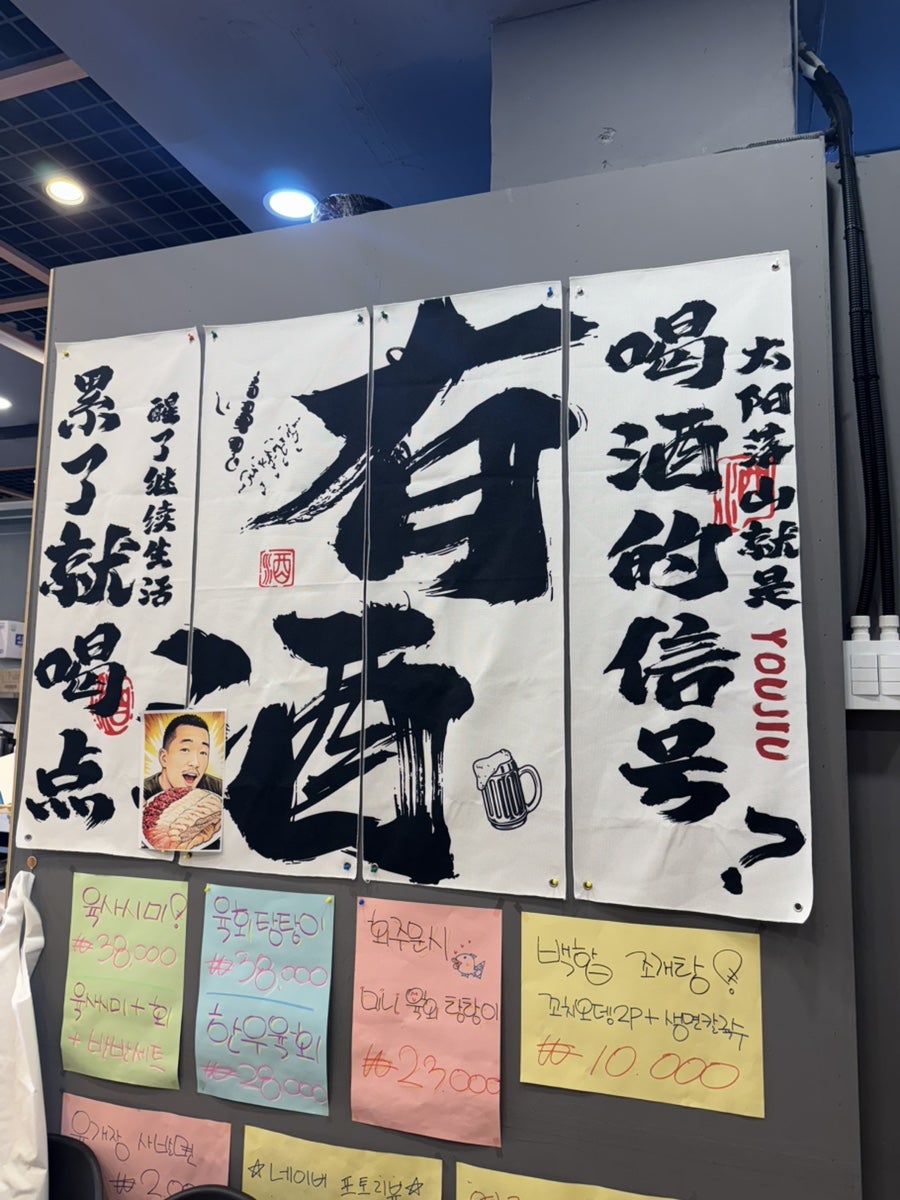 太阳落山就是
YOUJIU
喝酒的信号?
有酒
酒
酒
醒了继续生活
累了就喝点
酒
육사시미!
₩38,000
육사시미+회
+반반세트
육회탕탕이
₩38,000
한우육회
₩28,000
회주문시
미니 육회 탕탕이
₩23,000
백합 조개탕!
꼬치오뎅2P+생면칼국수
₩10,000
육개장 사발면
☆네이버 포토리뷰☆